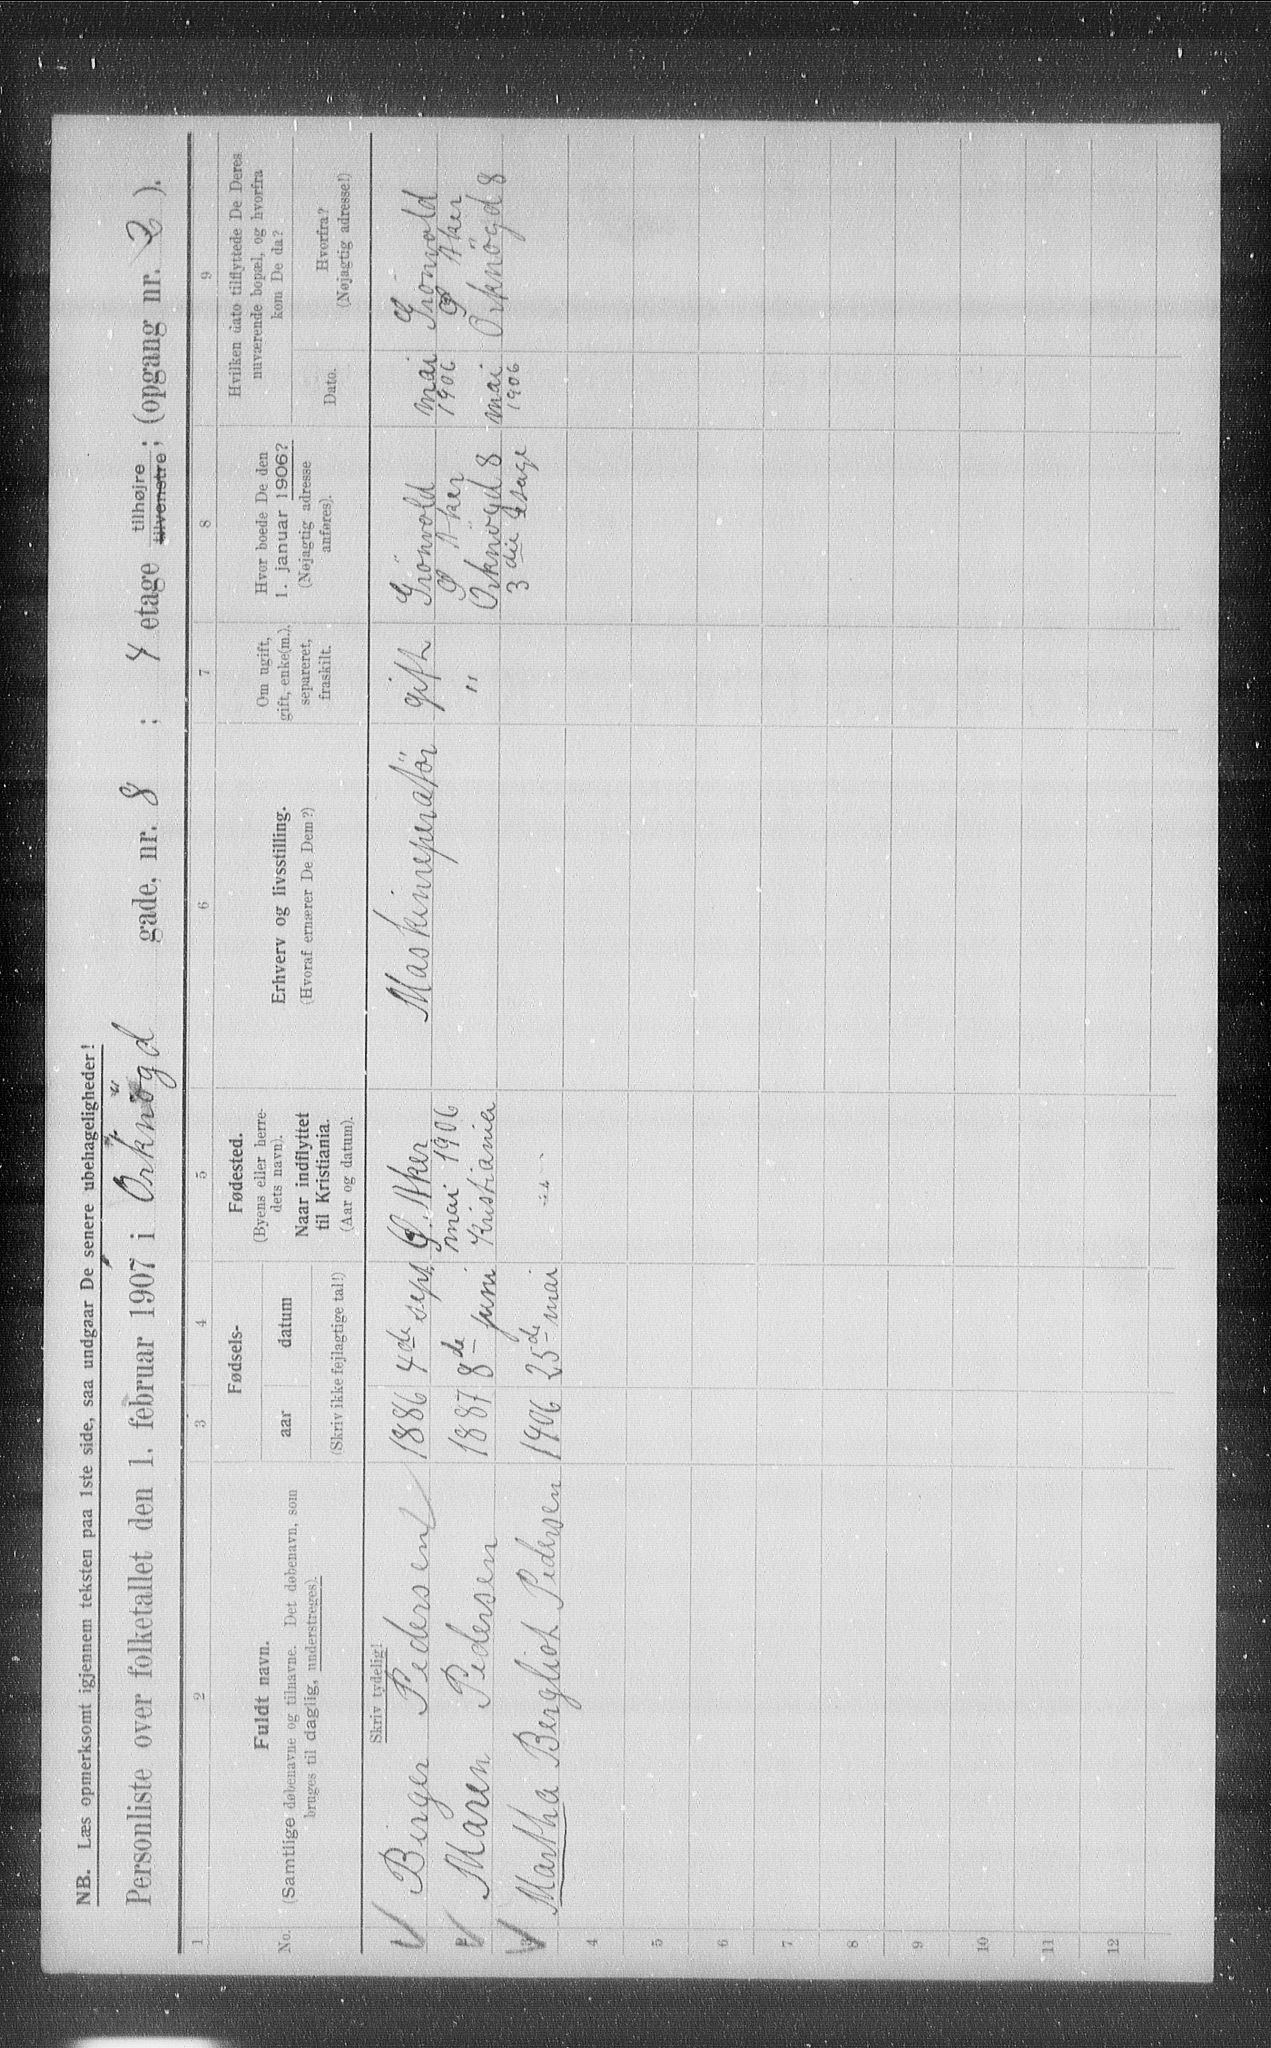 NB. Læs opmerksomt igjennem teksten paa 1ste side, saa undgaar De senere ubehageligheder!
Personliste over folketallet den 1. februar 1907 i Orknögd gade, nr. 8 ; 4 etage tilhøjre tilvenstre; (opgang nr. 2 ).
1 2 3 4 5 6 7 8 9
No.
Fuldt navn.
(Samtlige døbenavne og tilnavne. Det døbenavn, som
bruges til daglig, understreges).
Fødsels-
aar datum
(Skriv ikke fejlagtige tal!)
Fødested.
(Byens eller herre-
dets navn).
Naar indflyttet
til Kristiania.
(Aar og datum).
Erhverv og livsstilling.
(Hvoraf ernærer De Dem?)
Om ugift,
gift, enke(m.),
separeret,
fraskilt.
Hvor boede De den
1. januar 1906?
(Nøjagtig adresse
anføres).
Hvilken dato tilflyttede De Deres
nuværende bopæl, og hvorfra
kom De da?
Dato.
Hvorfra?
(Nøjagtig adresse!)
Skriv tydelig!
Birger Pedersen 1886 4de sept Ø. Aker mai 1906 Maskinreperatör gift Grönvold Ø Aker mai 1906 Grönvold Ø Aker
Maren Pedersen 1887 8de juni Kristiania " Orknögd 8 3die Etage mai 1906 Orknögd 8
3 Martha Bergliot Pedersen 1906 25de mai - " -
4
5
6
7
8
9
10
11
12